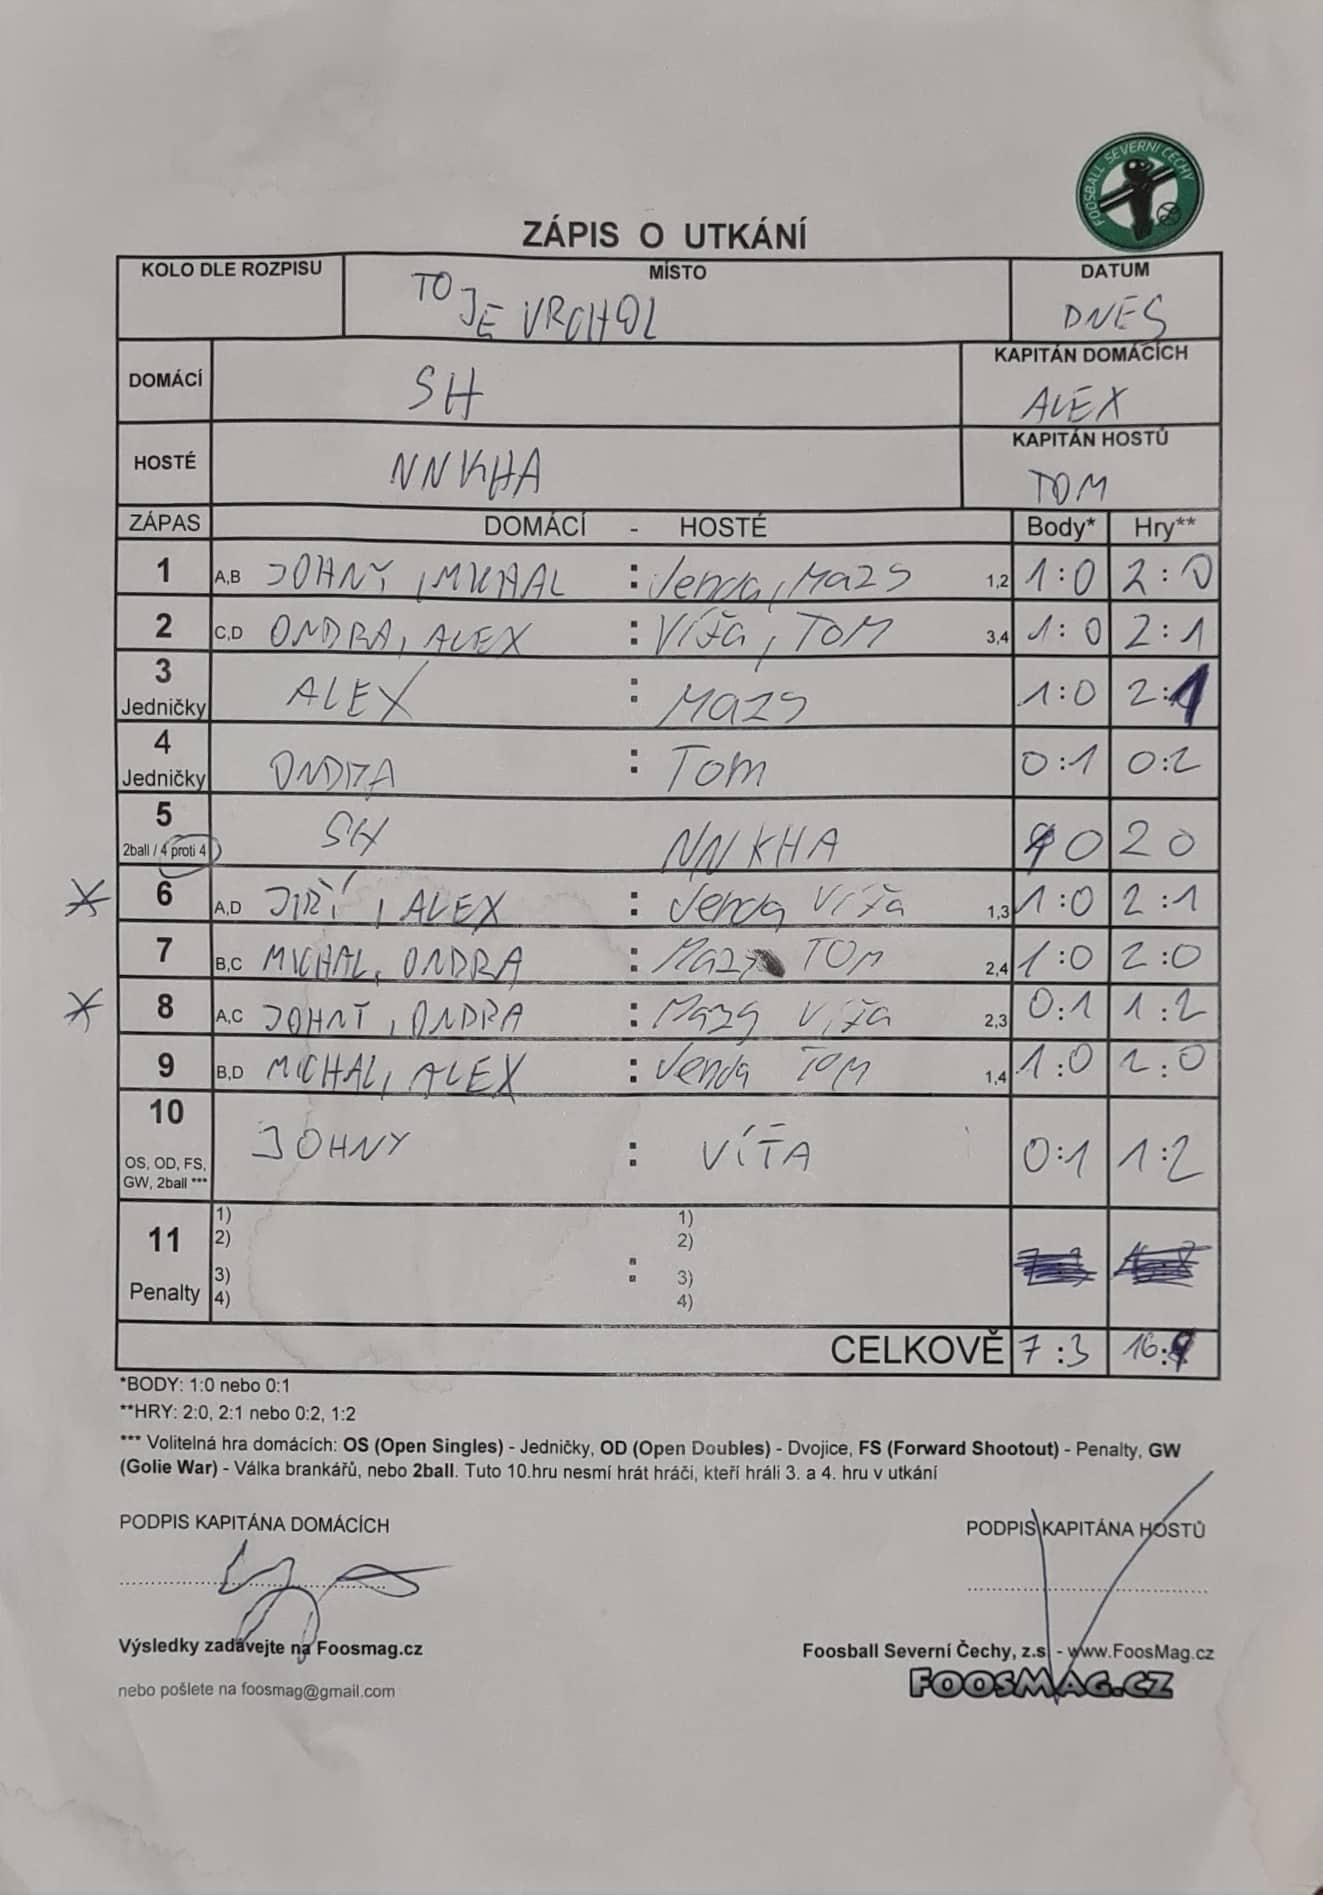 FOOSBALL SEVERNÍ ČECHY
ZÁPIS O UTKÁNÍ
KOLO DLE ROZPISU MÍSTO DATUM
TO JE VRCHOL DNES
DOMÁCÍ SH KAPITÁN DOMÁCÍCH
ALEX
HOSTÉ NNKHA KAPITÁN HOSTŮ
TOM
ZÁPAS DOMÁCÍ - HOSTÉ Body* Hry**
1 A,B JOHNY, MICHAL : Jenda, Mazs 1,2 1:0 2:0
2 C,D ONDRA, ALEX : Víťa, TOM 3,4 1:0 2:1
3 Jedničky ALEX : Mazs 1:0 2:1
4 Jedničky ONDRA : Tom 0:1 0:2
5 SH NNKHA 1 0 2 0
2ball / 4 proti 4
6 A,D JIŘÍ, ALEX : Jenda Víťa 1,3 1:0 2:1
7 B,C MICHAL, ONDRA : Mazs TOM 2,4 1:0 2:0
8 A,C JOHNY, ONDRA : Mazs Víťa 2,3 0:1 1:2
9 B,D MICHAL, ALEX : Jenda TOM 1,4 1:0 2:0
10 JOHNY : VÍŤA 0:1 1:2
OS, OD, FS,
GW, 2ball ***
1) 1)
11 2) : 2)
3) 3)
Penalty 4) 4)
CELKOVĚ 7:3 16:
*BODY: 1:0 nebo 0:1
**HRY: 2:0, 2:1 nebo 0:2, 1:2
*** Volitelná hra domácích: OS (Open Singles) - Jedničky, OD (Open Doubles) - Dvojice, FS (Forward Shootout) - Penalty, GW
(Golie War) - Válka brankářů, nebo 2ball. Tuto 10.hru nesmí hrát hráči, kteří hráli 3. a 4. hru v utkání
PODPIS KAPITÁNA DOMÁCÍCH PODPIS KAPITÁNA HOSTŮ
Výsledky zadávejte na Foosmag.cz Foosball Severní Čechy, z.s. - www.FoosMag.cz
nebo pošlete na foosmag@gmail.com FOOSMAG.CZ